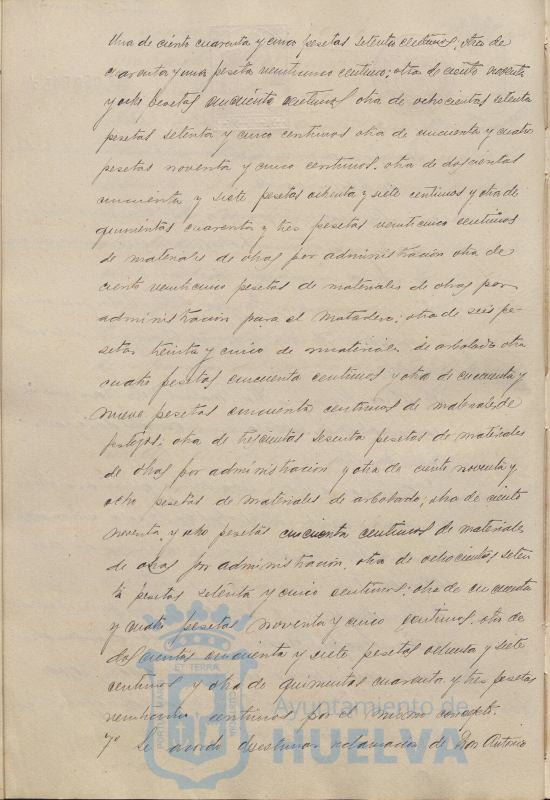 Una de ciento cuarenta y cinco pesetas setenta centimos; otra de
cuarenta y una peseta veinticinco centimos; otra de ciento noventa
y ocho pesetas cincuenta centimos otra de ochocientas setenta
pesetas setenta y cinco centimos otra de cincuenta y cuatro
pesetas noventa y cinco centimos. otra de doscientas
cincuenta y siete pesetas ochenta y siete centimos y otra de
quinientas cuarenta y tres pesetas veinticinco centimos
de materiales de obras por administración otra de
ciento veinticinco pesetas de materiales de obras por
administración para el Matadero; otra de seis pe-
setas treinta y cinco de materiales de arbolado otra
cuatro pesetas cincuenta centimos y otra de cincuenta y
nueve pesetas cincuenta centimos de materiales de
festejos; otra de trescientas sesenta pesetas de materiales
de obras por administración y otra de ciento noventa y
ocho pesetas de materiales de arbolado; otra de ciento
noventa y ocho pesetas cincuenta centimos de materiales
de obras por administración. otra de ochocientas seten
ta pesetas setenta y cinco centimos; otra de cincuenta
y cuatro pesetas noventa y cinco centimos, otra de
doscientas cincuenta y siete pesetas ochenta y siete
centimos y otra de quinientas cuarenta y tres pesetas
centimos por el mismo concepto.
7º Se acordó desestimar reclamación de Don Antonio
ET TERRA
Ayuntamiento de
HUELVA